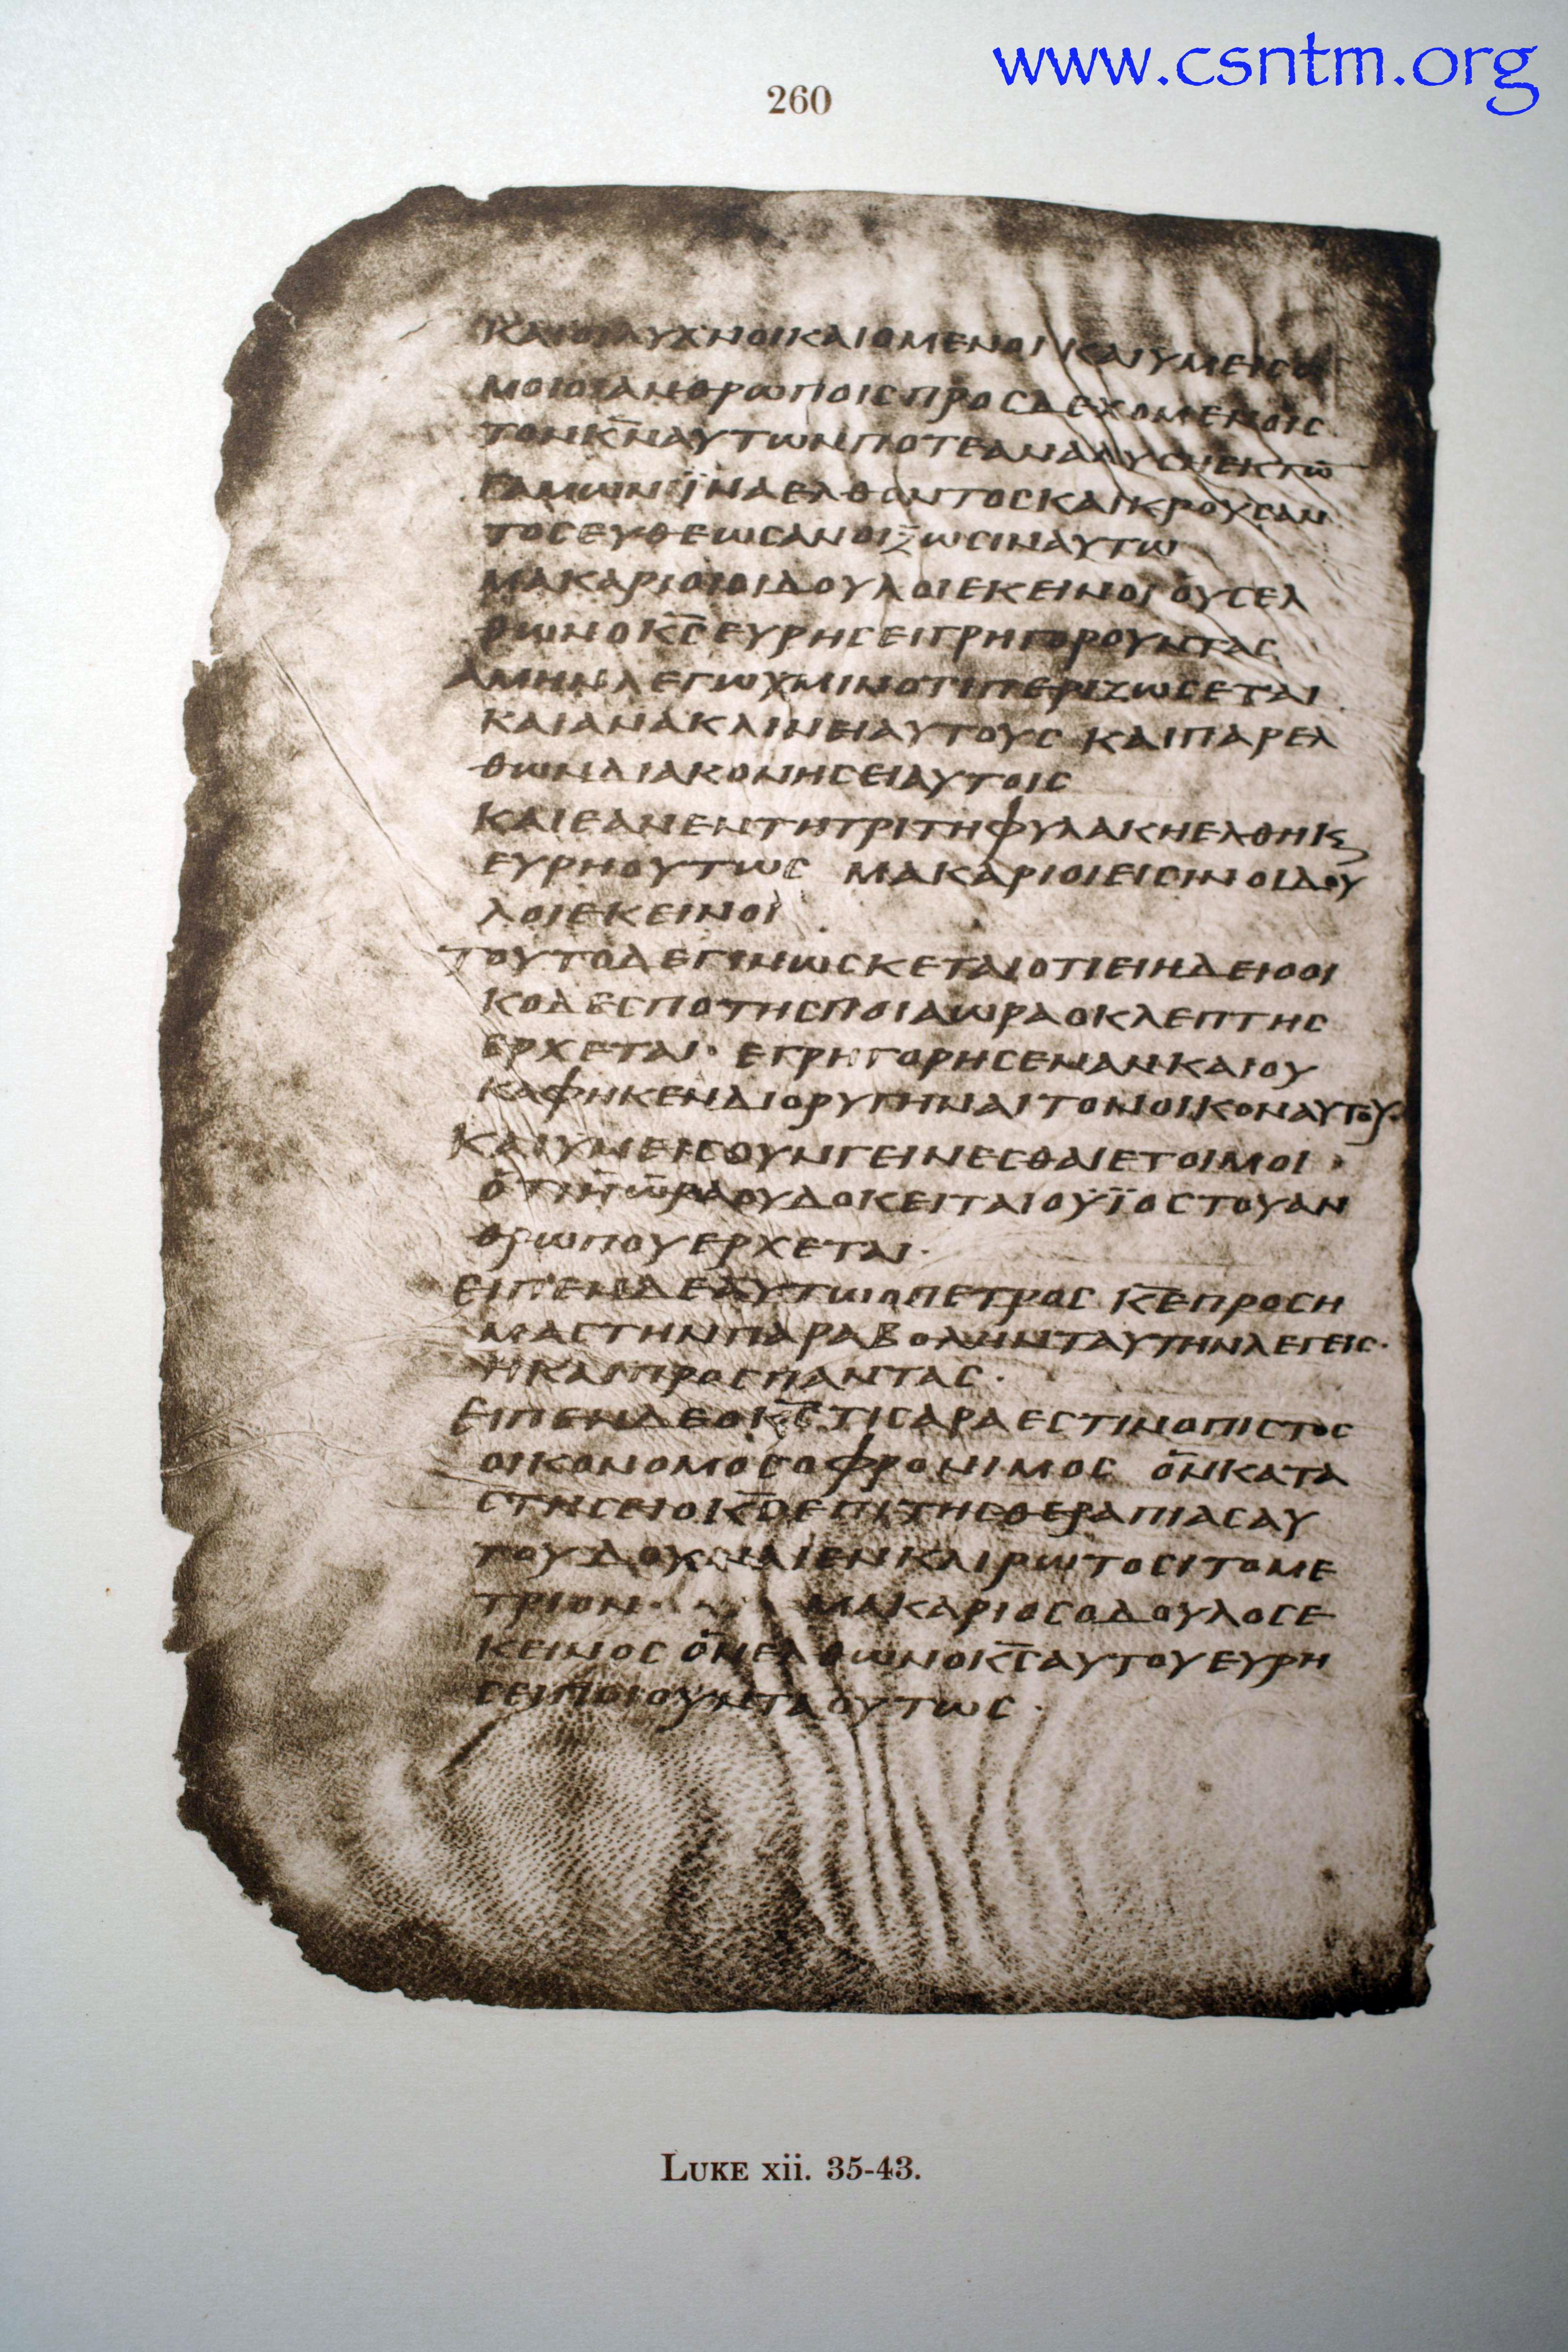 www.csntm.org
260
ΚΑΙΟΙΛΥΧΝΟΙΚΑΙΟΜΕΝΟΙ ΚΑΙΥΜΕΙCΟ
ΜΟΙΟΙΑΝΘΡΩΠΟΙCΠΡΟCΔΕΧΟΜΕΝΟΙC
ΤΟΝΚ̅Ν̅ΑΥΤΩΝΠΟΤΕΑΝΑΛΥCΗΕΚΤΩ̅
ΓΑΜΩΝ ΪΝΑΕΛΘΟΝΤΟCΚΑΙΚΡΟΥCΑΝ
ΤΟCΕΥΘΕΩCΑΝΟΙΞΩCΙΝΑΥΤΩ
ΜΑΚΑΡΙΟΙΟΙΔΟΥΛΟΙΕΚΕΙΝΟΙ ΟΥCΕΛ
ΘΩΝΟΚ̅C̅ΕΥΡΗCΕΙΓΡΗΓΟΡΟΥΝΤΑC
ΑΜΗΝΛΕΓΩΥΜΙΝΟΤΙΠΕΡΙΖΩCΕΤΑΙ
ΚΑΙΑΝΑΚΛΙΝΕΙΑΥΤΟΥC ΚΑΙΠΑΡΕΛ
ΘΩΝΔΙΑΚΟΝΗCΕΙΑΥΤΟΙC
ΚΑΙΕΑΝΕΝΤΗΤΡΙΤΗΦΥΛΑΚΗΕΛΘΗΚϚ
ΕΥΡΗΟΥΤΩC ΜΑΚΑΡΙΟΙΕΙCΙΝΟΙΔΟΥ
ΛΟΙΕΚΕΙΝΟΙ
ΤΟΥΤΟΔΕΓΙΝΩCΚΕΤΑΙΟΤΙΕΙΗΔΕΙΟΟΙ
ΚΟΔΕCΠΟΤΗCΠΟΙΑΩΡΑΟΚΛΕΠΤΗC
ΕΡΧΕΤΑΙ· ΕΓΡΗΓΟΡΗCΕΝΑΝΚΑΙΟΥ
ΚΑΦΗΚΕΝΔΙΟΡΥΓΗΝΑΙΤΟΝΟΙΚΟΝΑΥΤΟΥ·
ΚΑΙΥΜΕΙCΟΥΝΓΕΙΝΕCΘΑΙΕΤΟΙΜΟΙ·
ΟΤΙΗΩΡΑΟΥΔΟΚΕΙΤΑΙΟΫΪΟCΤΟΥΑΝ
ΘΡΩΠΟΥΕΡΧΕΤΑΙ·
ΕΙΠΕΝΔΕΑΥΤΩΟΠΕΤΡΟC Κ̅Ε̅ΠΡΟCΗ
ΜΑCΤΗΝΠΑΡΑΒΟΛΗΝΤΑΥΤΗΝΛΕΓΕΙC·
ΗΚΑΙΠΡΟCΠΑΝΤΑC·
ΕΙΠΕΝΔΕΟΚ̅C̅ΤΙCΑΡΑΕCΤΙΝΟΠΙCΤΟC
ΟΙΚΟΝΟΜΟCΟΦΡΟΝΙΜΟC ΟΝΚΑΤΑ
CΤΗCΕΙΟΚ̅C̅ΕΠΙΤΗCΘΕΡΑΠΙΑCΑΥ
ΤΟΥΔΟΥΝΑΙΕΝΚΑΙΡΩΤΟCΙΤΟΜΕ
ΤΡΙΟΝ· ΜΑΚΑΡΙΟCΟΔΟΥΛΟCΕ
ΚΕΙΝΟC ΟΝΕΛΘΩΝΟΚ̅C̅ΑΥΤΟΥΕΥΡΗ
CΕΙΠΟΙΟΥΝΤΑΟΥΤΩC·
LUKE xii. 35-43.